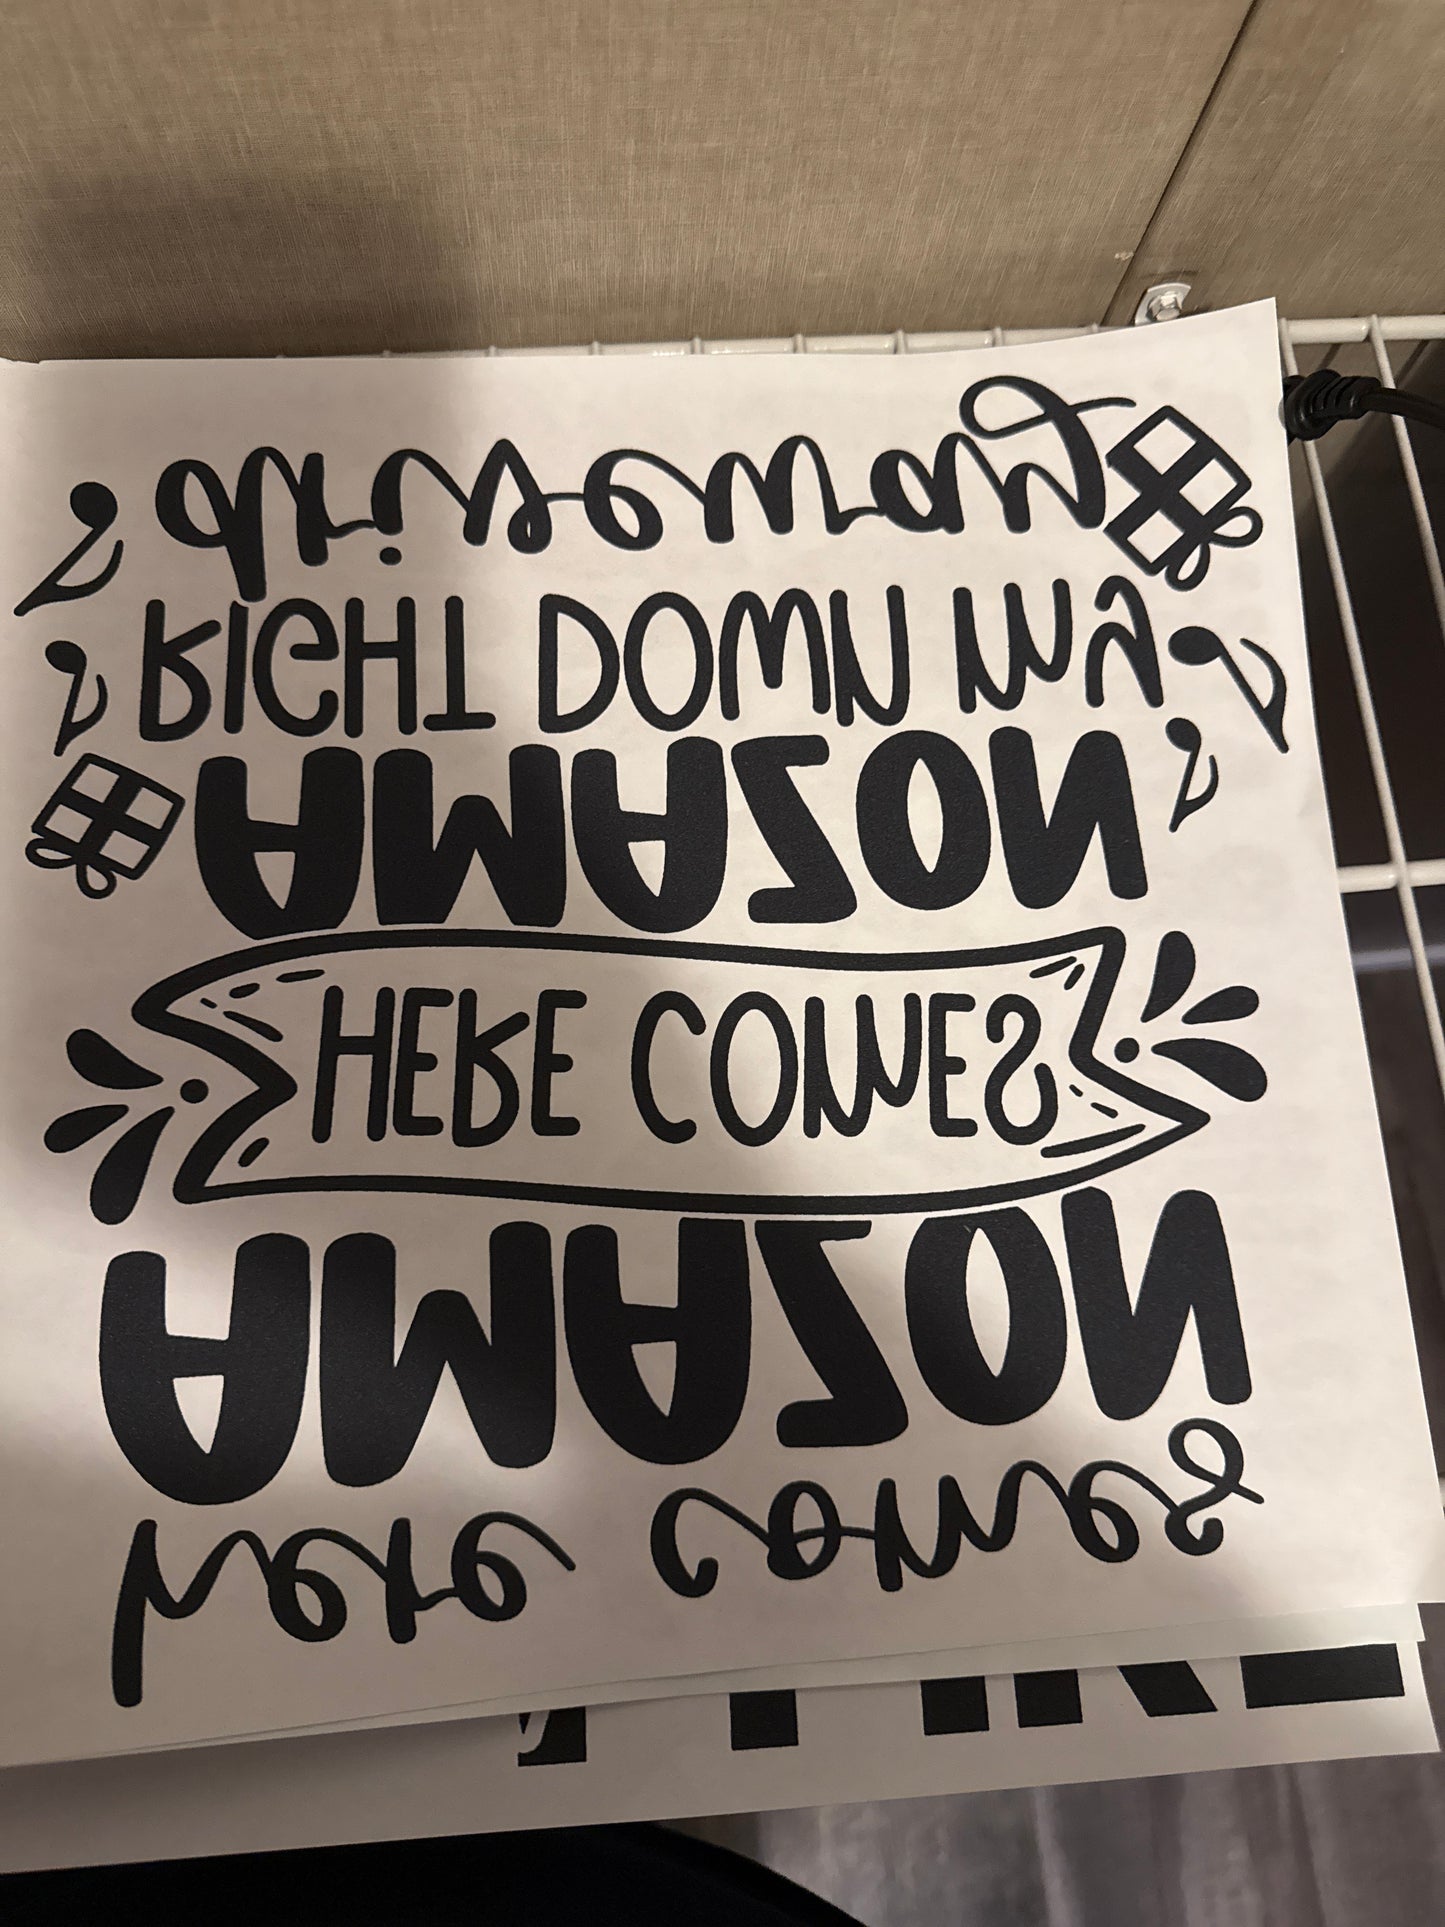 here comes
AMAZON
HERE COMES
AMAZON
RIGHT DOWN MY
driveway